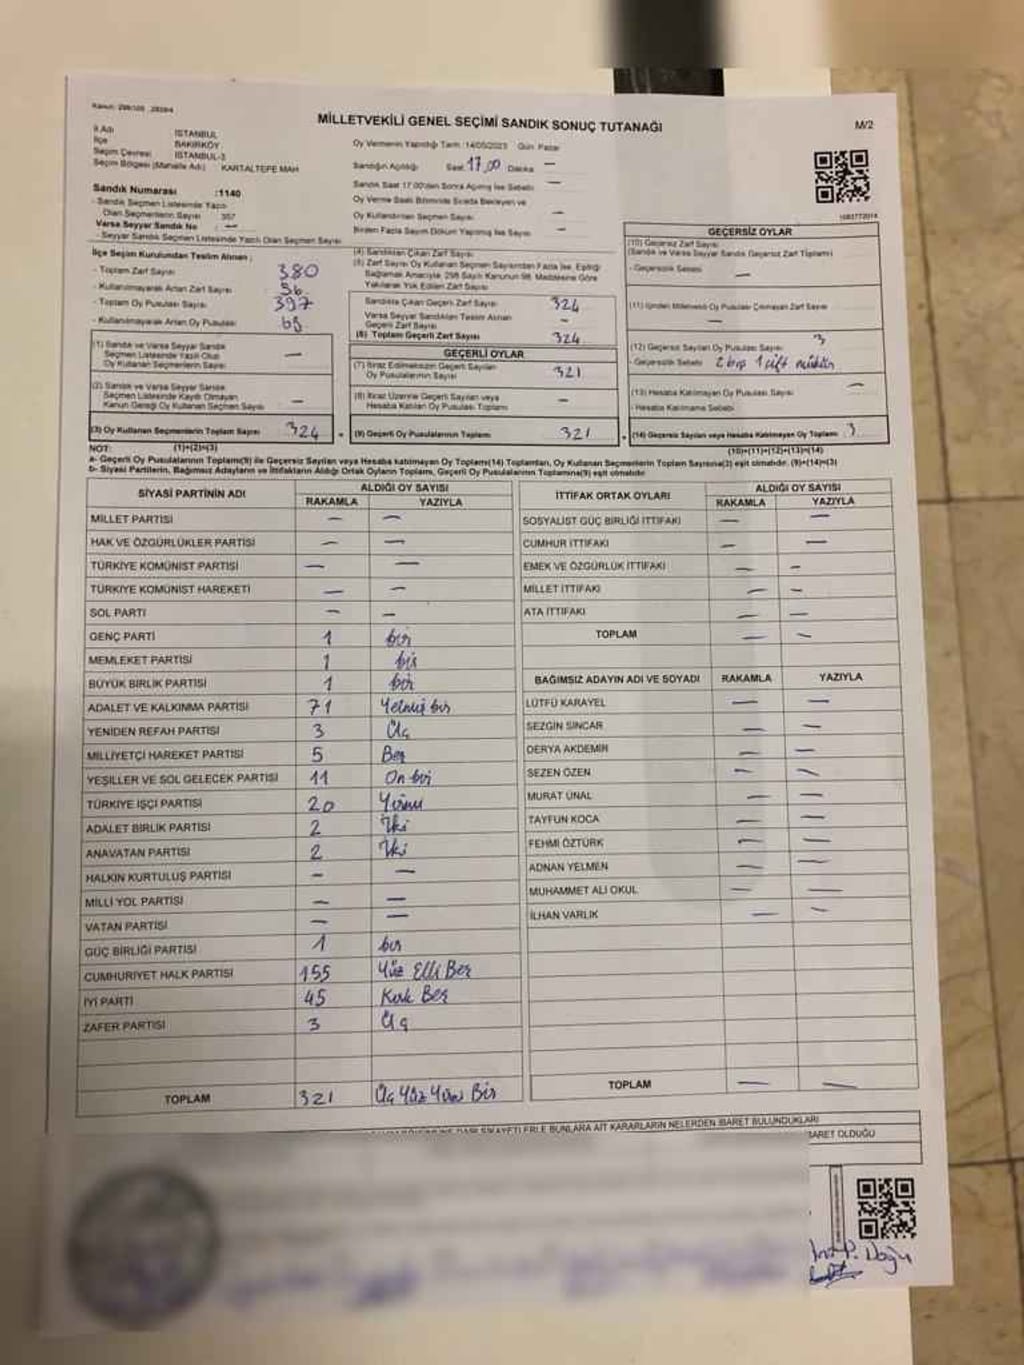 MİLLETVEKİLİ GENEL SEÇİMİ SANDIK SONUÇ TUTANAĞI
M/2
İl Adı İSTANBUL
İlçe BAKIRKÖY
Seçim Çevresi İSTANBUL-3
Seçim Bölgesi (Mahalle Adı) KARTALTEPE MAH
Sandık Numarası :1140
- Sandık Seçmen Listesinde Yazılı
Olan Seçmenlerin Sayısı 357
Varsa Seyyar Sandık No —
- Seyyar Sandık Seçmen Listesinde Yazılı Olan Seçmen Sayısı
Oy Vermenin Yapıldığı Tarih :14/05/2023 Gün: Pazar
Sandığın Açıldığı Saat 17,00 Dakika —
Sandık Saat 17.00'den Sonra Açılmış İse Sebebi —
Oy Verme Saati Bitiminde Sırada Bekleyen ve
Oy Kullandırılan Seçmen Sayısı —
Birden Fazla Sayım Döküm Yapılmış İse Sayısı —
İlçe Seçim Kurulundan Teslim Alınan ;
- Toplam Zarf Sayısı 380
- Kullanılmayarak Artan Zarf Sayısı 56
- Toplam Oy Pusulası Sayısı 397
- Kullanılmayarak Artan Oy Pusulası
(1) Sandık ve Varsa Seyyar Sandık
Seçmen Listesinde Yazılı Olup
Oy Kullanan Seçmenlerin Sayısı —
(2) Sandık ve Varsa Seyyar Sandık
Seçmen Listesinde Kayıtlı Olmayan
Kanun Gereği Oy Kullanan Seçmen Sayısı —
(3) Oy Kullanan Seçmenlerin Toplam Sayısı 324
(1)+(2)=(3)
(4) Sandıktan Çıkan Zarf Sayısı
(5) Zarf Sayısı Oy Kullanan Seçmen Sayısından Fazla İse, Eşitliği
Sağlamak Amacıyla 298 Sayılı Kanunun 98. Maddesine Göre
Yakılarak Yok Edilen Zarf Sayısı
Sandıkta Çıkan Geçerli Zarf Sayısı 324
Varsa Seyyar Sandıktan Teslim Alınan
Geçerli Zarf Sayısı —
(6) Toplam Geçerli Zarf Sayısı 324
GEÇERLİ OYLAR
(7) İtiraz Edilmeksizin Geçerli Sayılan
Oy Pusulalarının Sayısı 321
(8) İtiraz Üzerine Geçerli Sayılan veya
Hesaba Katılan Oy Pusulası Toplamı —
= (9) Geçerli Oy Pusulalarının Toplamı 321
GEÇERSİZ OYLAR
(10) Geçersiz Zarf Sayısı
(Sandık ve Varsa Seyyar Sandık Geçersiz Zarf Toplamı)
- Geçersizlik Sebebi —
(11) İçinden Milletvekili Oy Pusulası Çıkmayan Zarf Sayısı
—
(12) Geçersiz Sayılan Oy Pusulası Sayısı 3
- Geçersizlik Sebebi 2 boş 1 çift mühür
(13) Hesaba Katılmayan Oy Pusulası Sayısı —
- Hesaba Katılmama Sebebi
+ (14) Geçersiz Sayılan veya Hesaba Katılmayan Oy Toplamı 3
(10)+(11)+(12)+(13)=(14)
NOT:
a- Geçerli Oy Pusulalarının Toplamı(9) ile Geçersiz Sayılan veya Hesaba katılmayan Oy Toplamı(14) Toplamları, Oy Kullanan Seçmenlerin Toplam Sayısına(3) eşit olmalıdır. (9)+(14)=(3)
b- Siyasi Partilerin, Bağımsız Adayların ve İttifakların Aldığı Ortak Oyların Toplamı, Geçerli Oy Pusulalarının Toplamına(9) eşit olmalıdır
SİYASİ PARTİNİN ADI ALDIĞI OY SAYISI
RAKAMLA YAZIYLA
MİLLET PARTİSİ — —
HAK VE ÖZGÜRLÜKLER PARTİSİ — —
TÜRKİYE KOMÜNİST PARTİSİ — —
TÜRKİYE KOMÜNİST HAREKETİ — —
SOL PARTİ — —
GENÇ PARTİ 1 bir
MEMLEKET PARTİSİ 1 bir
BÜYÜK BİRLİK PARTİSİ 1 bir
ADALET VE KALKINMA PARTİSİ 71 Yetmiş bir
YENİDEN REFAH PARTİSİ 3 Üç
MİLLİYETÇİ HAREKET PARTİSİ 5 Beş
YEŞİLLER VE SOL GELECEK PARTİSİ 11 On bir
TÜRKİYE İŞÇİ PARTİSİ 20 Yirmi
ADALET BİRLİK PARTİSİ 2 İki
ANAVATAN PARTİSİ 2 İki
HALKIN KURTULUŞ PARTİSİ — —
MİLLİ YOL PARTİSİ — —
VATAN PARTİSİ — —
GÜÇ BİRLİĞİ PARTİSİ 1 bir
CUMHURİYET HALK PARTİSİ 155 Yüz Elli Beş
İYİ PARTİ 45 Kırk Beş
ZAFER PARTİSİ 3 Üç
TOPLAM 321 Üç Yüz Yirmi Bir
İTTİFAK ORTAK OYLARI ALDIĞI OY SAYISI
RAKAMLA YAZIYLA
SOSYALİST GÜÇ BİRLİĞİ İTTİFAKI — —
CUMHUR İTTİFAKI — —
EMEK VE ÖZGÜRLÜK İTTİFAKI — —
MİLLET İTTİFAKI — —
ATA İTTİFAKI — —
TOPLAM — —
BAĞIMSIZ ADAYIN ADI VE SOYADI RAKAMLA YAZIYLA
LÜTFÜ KARAYEL — —
SEZGİN SİNCAR — —
DERYA AKDEMİR — —
SEZEN ÖZEN — —
MURAT ÜNAL — —
TAYFUN KOCA — —
FEHMİ ÖZTÜRK — —
ADNAN YELMEN — —
MUHAMMET ALİ OKUL — —
İLHAN VARLIK — —
TOPLAM — —
ŞİKAYETLERLE BUNLARA AİT KARARLARIN NELERDEN İBARET BULUNDUKLARI
BARET OLDUĞU